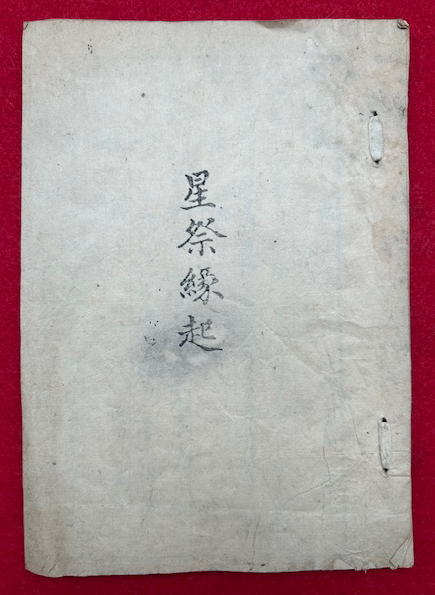 星祭縁起